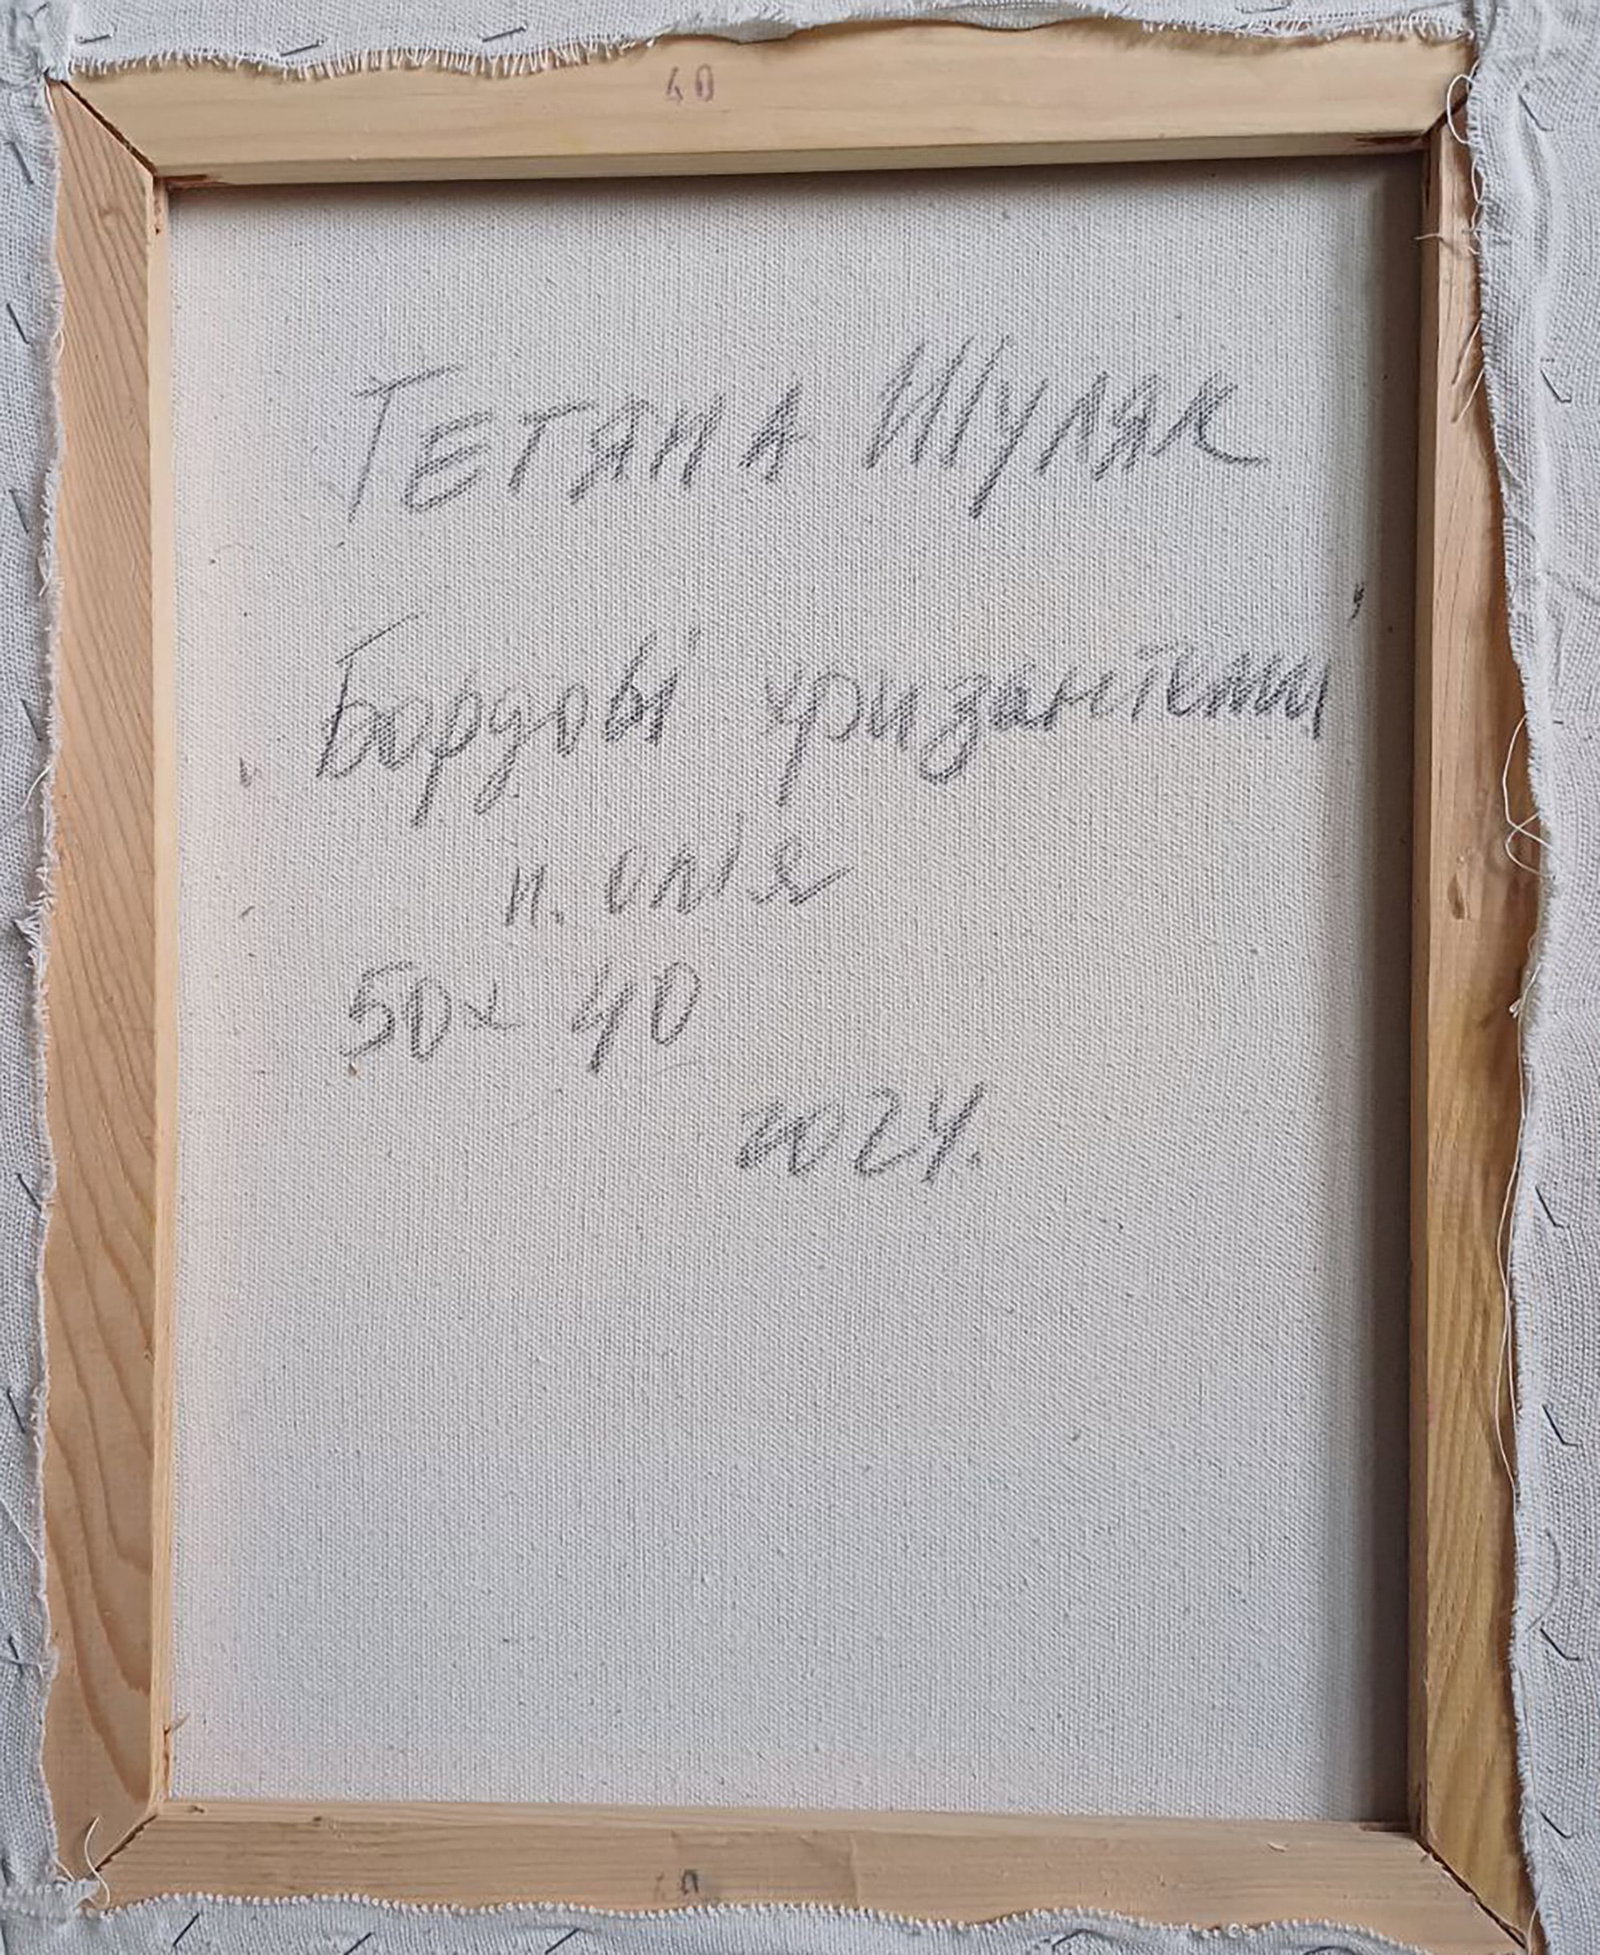 40
Тетяна Шуляк
"Бордові хризантеми"
п. олія
50х 40
2024.
40